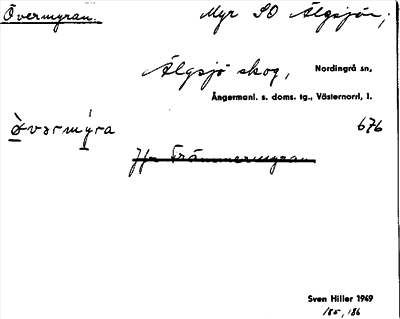 Övermyran. Myr SO Älgsjön,
Älgsjö skog, Nordingrå sn,
Ångermanl. s. doms. tg., Västernorrl. l.
676
Jfr Främmermyran
Sven Hiller 1949
185, 186